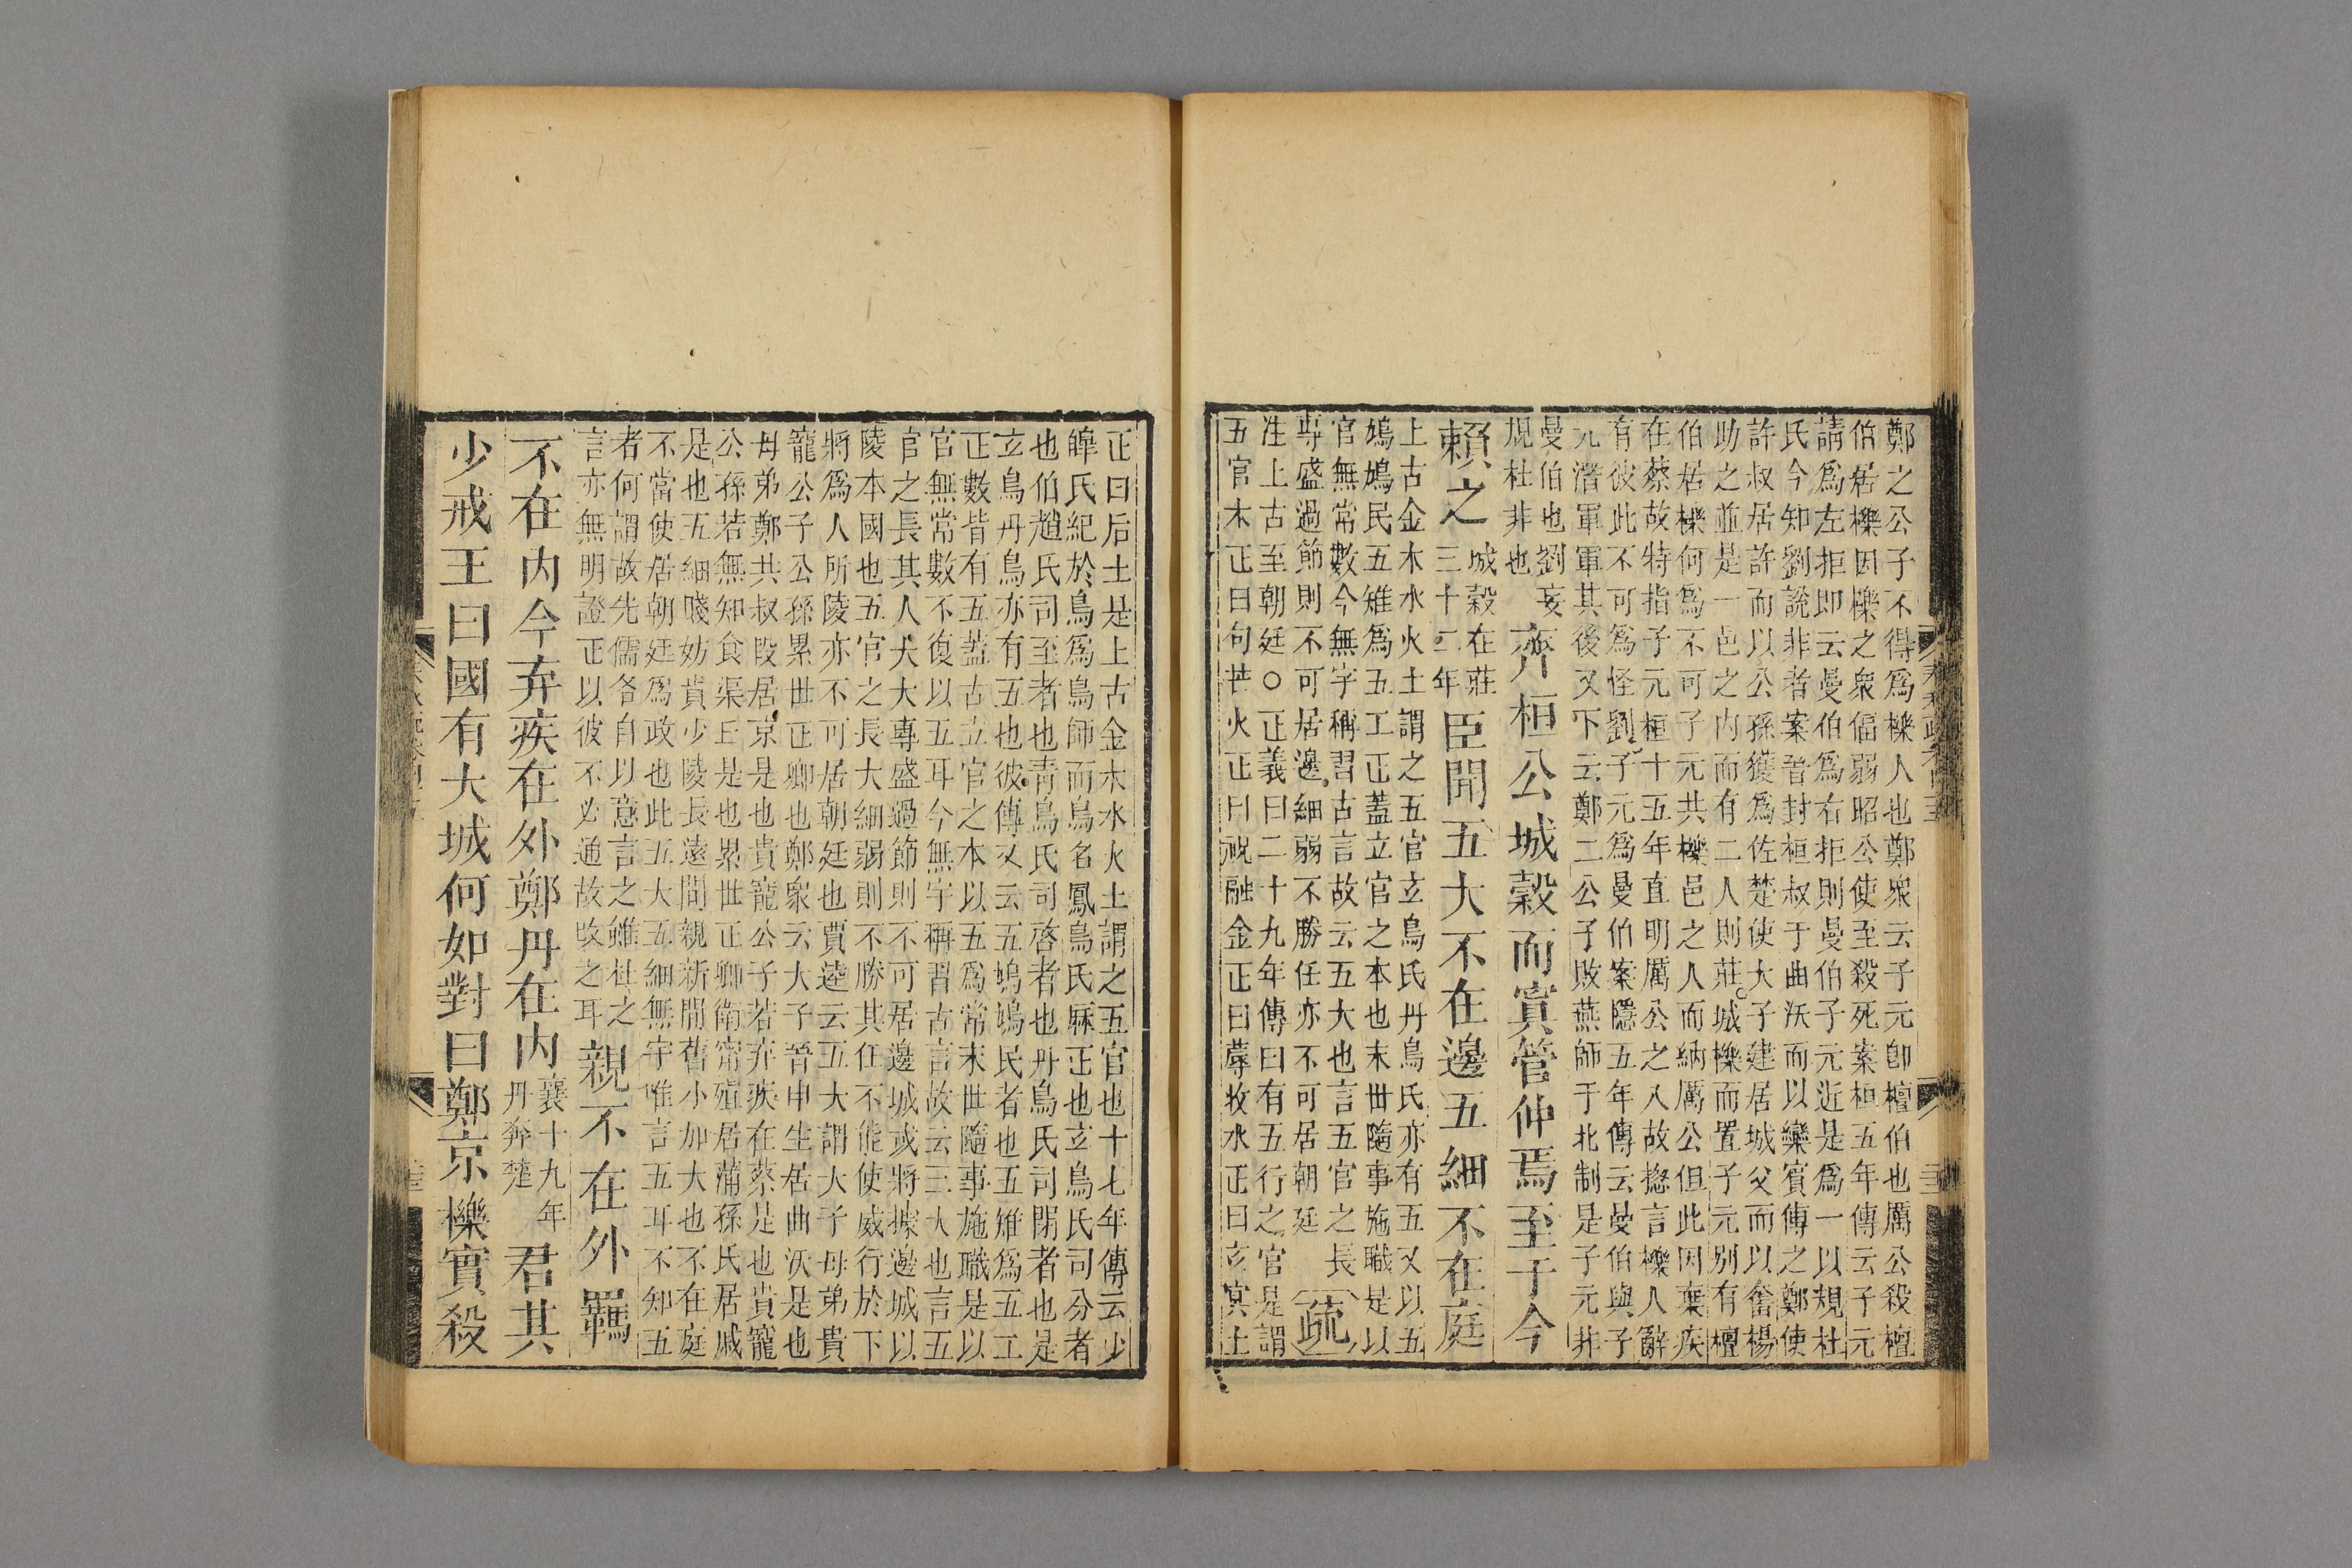 鄭之公子不得爲櫟人也鄭衆云子元卽檀伯也厲公殺檀
伯居櫟因櫟之衆偪弱昭公使至殺死案桓五年傳云子元
請爲左拒即云曼伯爲右拒則曼伯子元近是爲一以規杜
氏今知劉說非者案晉封桓叔于曲沃而以欒賓傅之鄭使
許叔居許而以公孫獲爲佐楚使大子建居城父而以奮楊
助之並是一邑之内而有二人則莊城櫟而置子元別有檀
伯居櫟何爲不可子元共櫟邑之人而納厲公但此因棄疾
在蔡故特指子元桓十五年直明厲公之入故揔言櫟人辭
有彼此不可爲怪劉子元爲曼伯案隱五年傳云曼伯與子
元潛軍軍其後又下云鄭二公子敗燕師于北制是子元并
曼伯也劉妄
規杜非也
齊桓公城穀而寘管仲焉至于今
賴之
城穀在莊
三十二年
臣聞五大不在邊五細不在庭
上古金木水火土謂之五官玄鳥氏丹鳥氏亦有五又以五
鳩鳩民五雉爲五工正蓋立官之本也末世隨事施職是以
官無常數今無宇稱習古言故云五大也言五官之長
專盛過節則不可居邊細弱不勝任亦不可居朝廷
疏
注上古至朝廷○正義曰二十九年傳曰有五行之官是謂
五官木正曰句芒火正曰祝融金正曰蓐收水正曰玄冥土
正曰后土是上古金木水火土謂之五官也十七年傳云少
皥氏紀於鳥爲鳥師而鳥名鳳鳥氏厤正也玄鳥氏司分者
也伯趙氏司至者也青鳥氏司啓者也丹鳥氏司閉者也是
玄鳥丹鳥亦有五也彼傳又云五鳩鳩民者也五雉爲五工
正數皆有五蓋古立官之本以五爲常末世隨事施職是以
官無常數不復以五耳今無宇稱習古言故云五大也言五
官之長其人大大專盛過節則不可居邊城或將據邊城以
陵本國也五官之長大細弱則不勝其任不能使威行於下
將爲人所陵亦不可居朝廷也賈逵云五大謂大子母弟貴
寵公子公孫累世正卿也鄭衆云大子晉申生居曲沃是也
母弟鄭共叔段居京是也貴寵公子若弃疾在蔡是也貴寵
公孫若無知食渠丘是也累世正卿衞甯殖居蒲孫氏居戚
是也五細賤妨貴少陵長遠間親新間舊小加大也不在庭
不當使居朝廷爲政也此五大五細無宇唯言五耳不知五
者何謂故先儒各自以意言之雖杜之
言亦無明證正以彼不必通故改之耳
親不在外羈
不在内今弃疾在外鄭丹在内
襄十九年
丹奔楚
君其
少戒王曰國有大城何如對曰鄭京櫟實殺